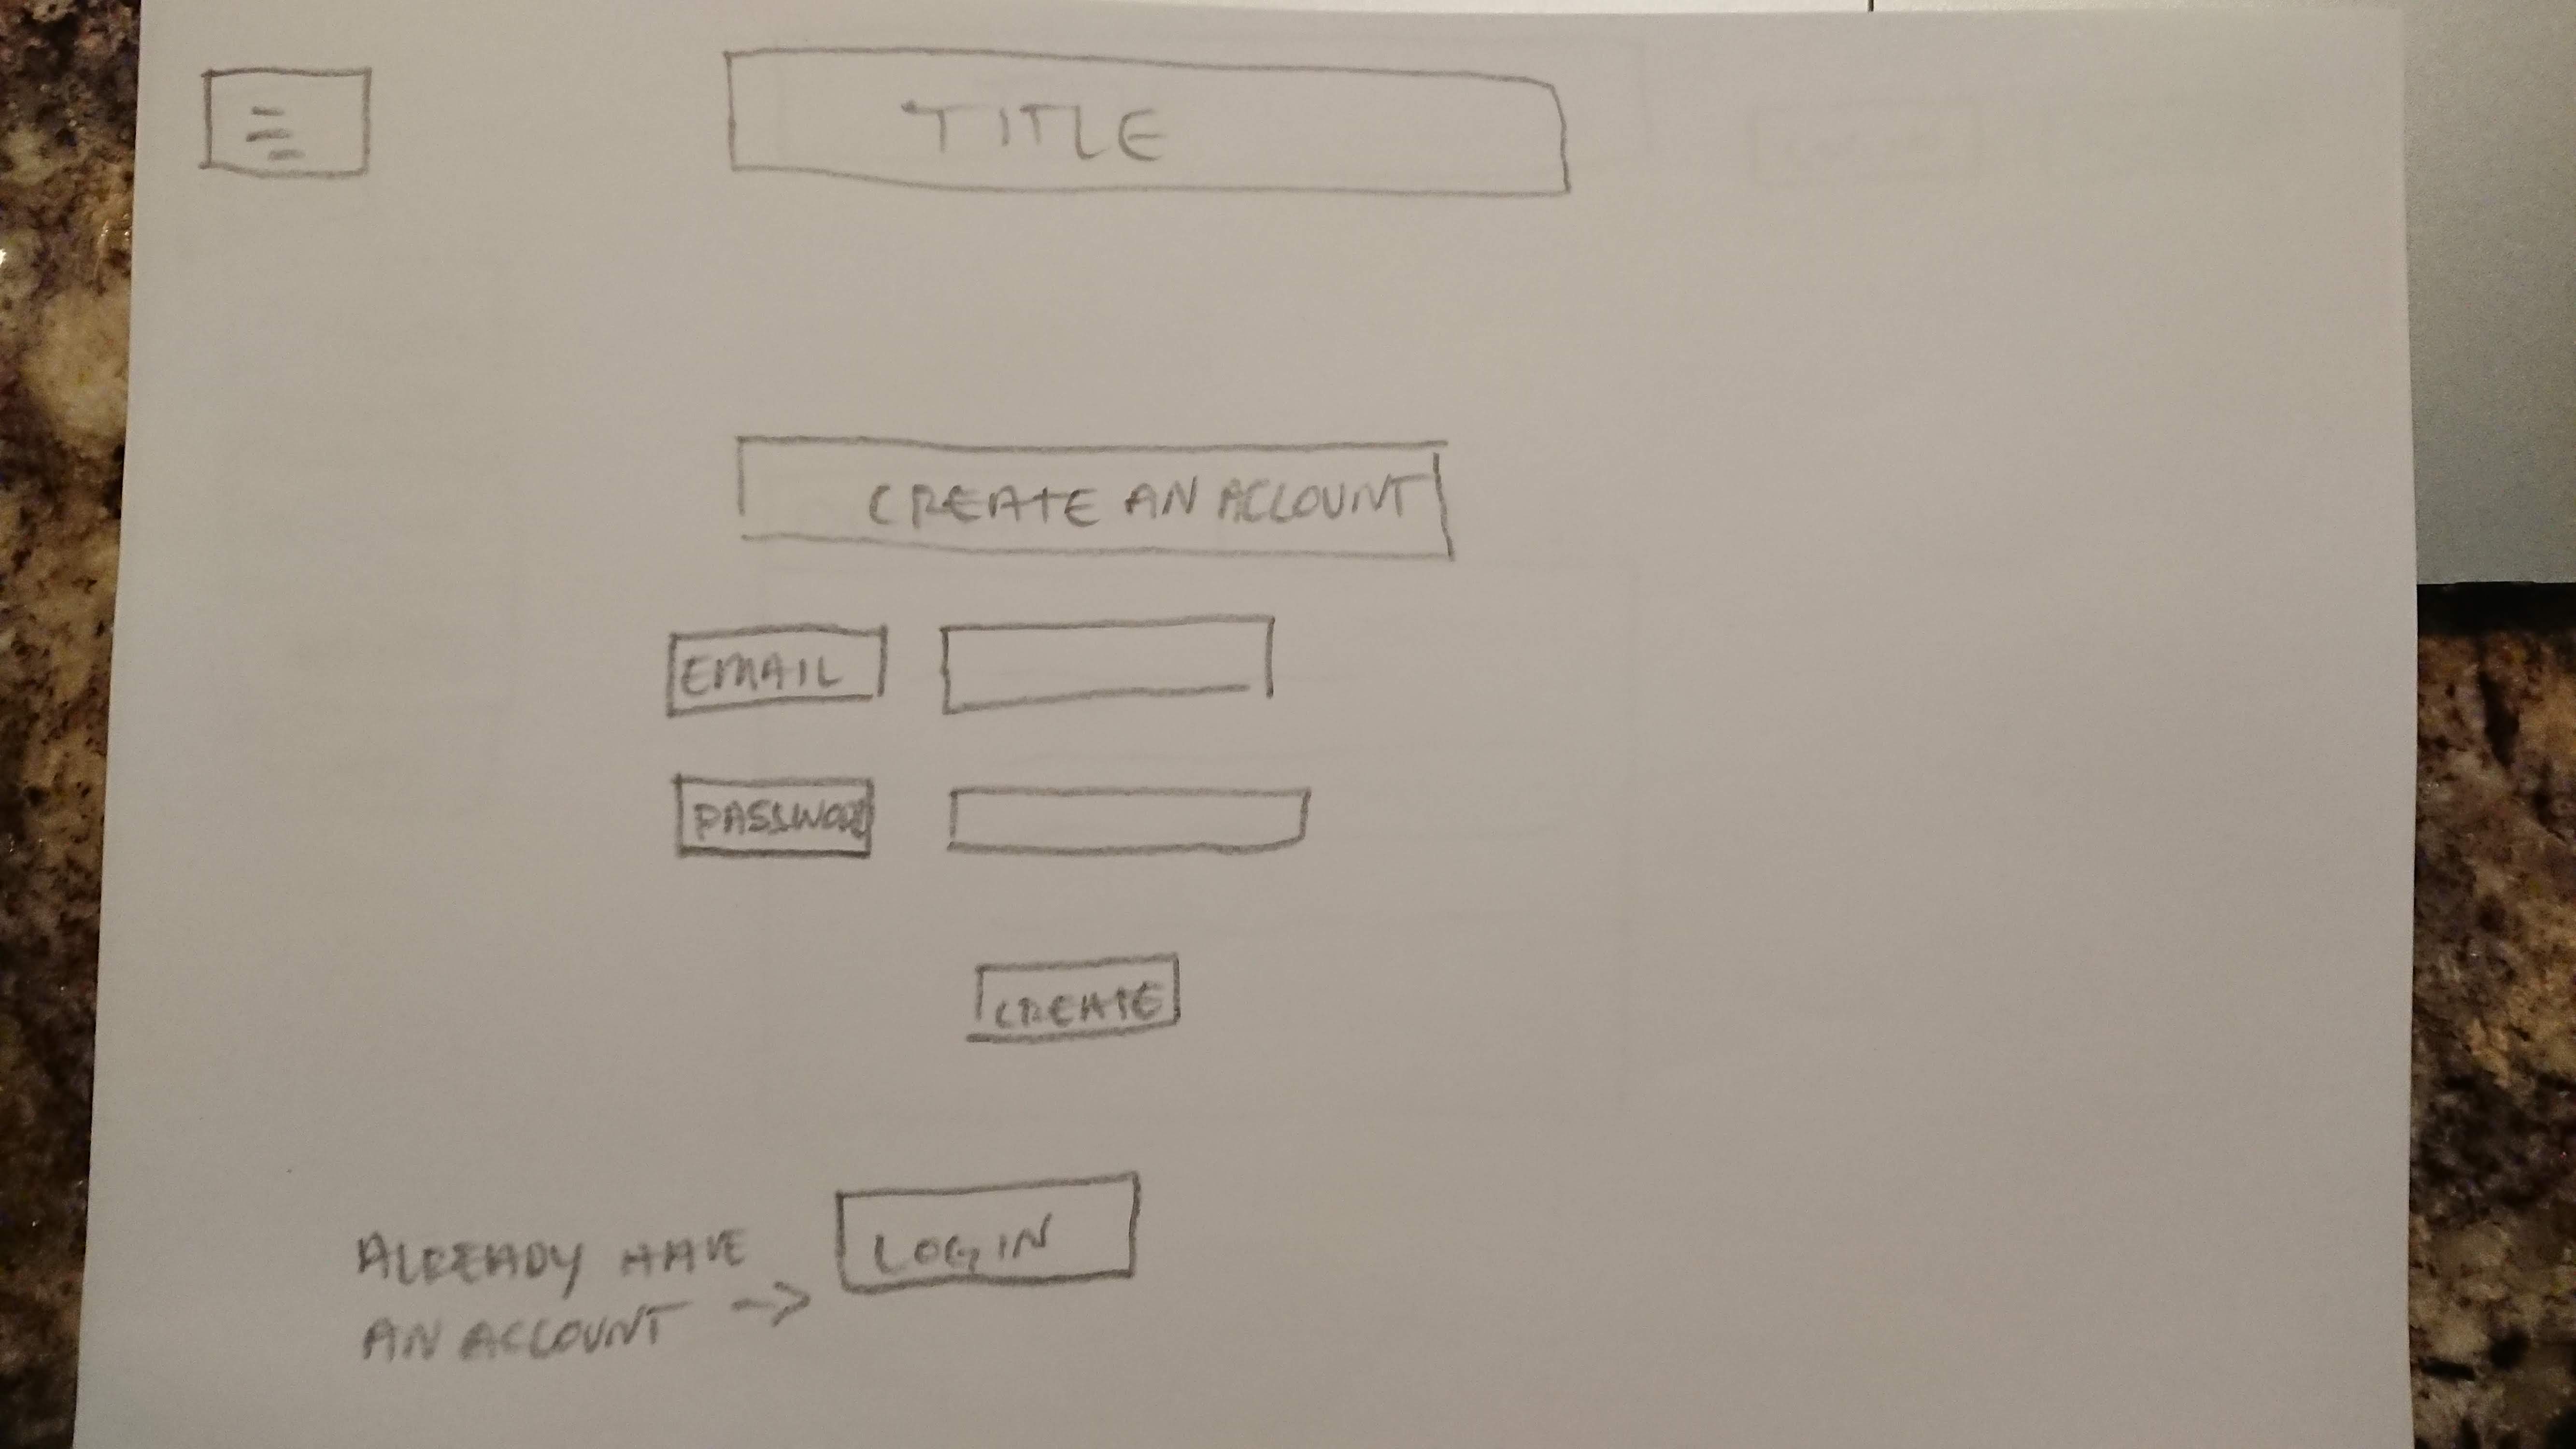 TITLE
CREATE AN ACCOUNT
EMAIL
PASSWORD
CREATE
ALREADY HAVE
AN ACCOUNT ->
LOGIN